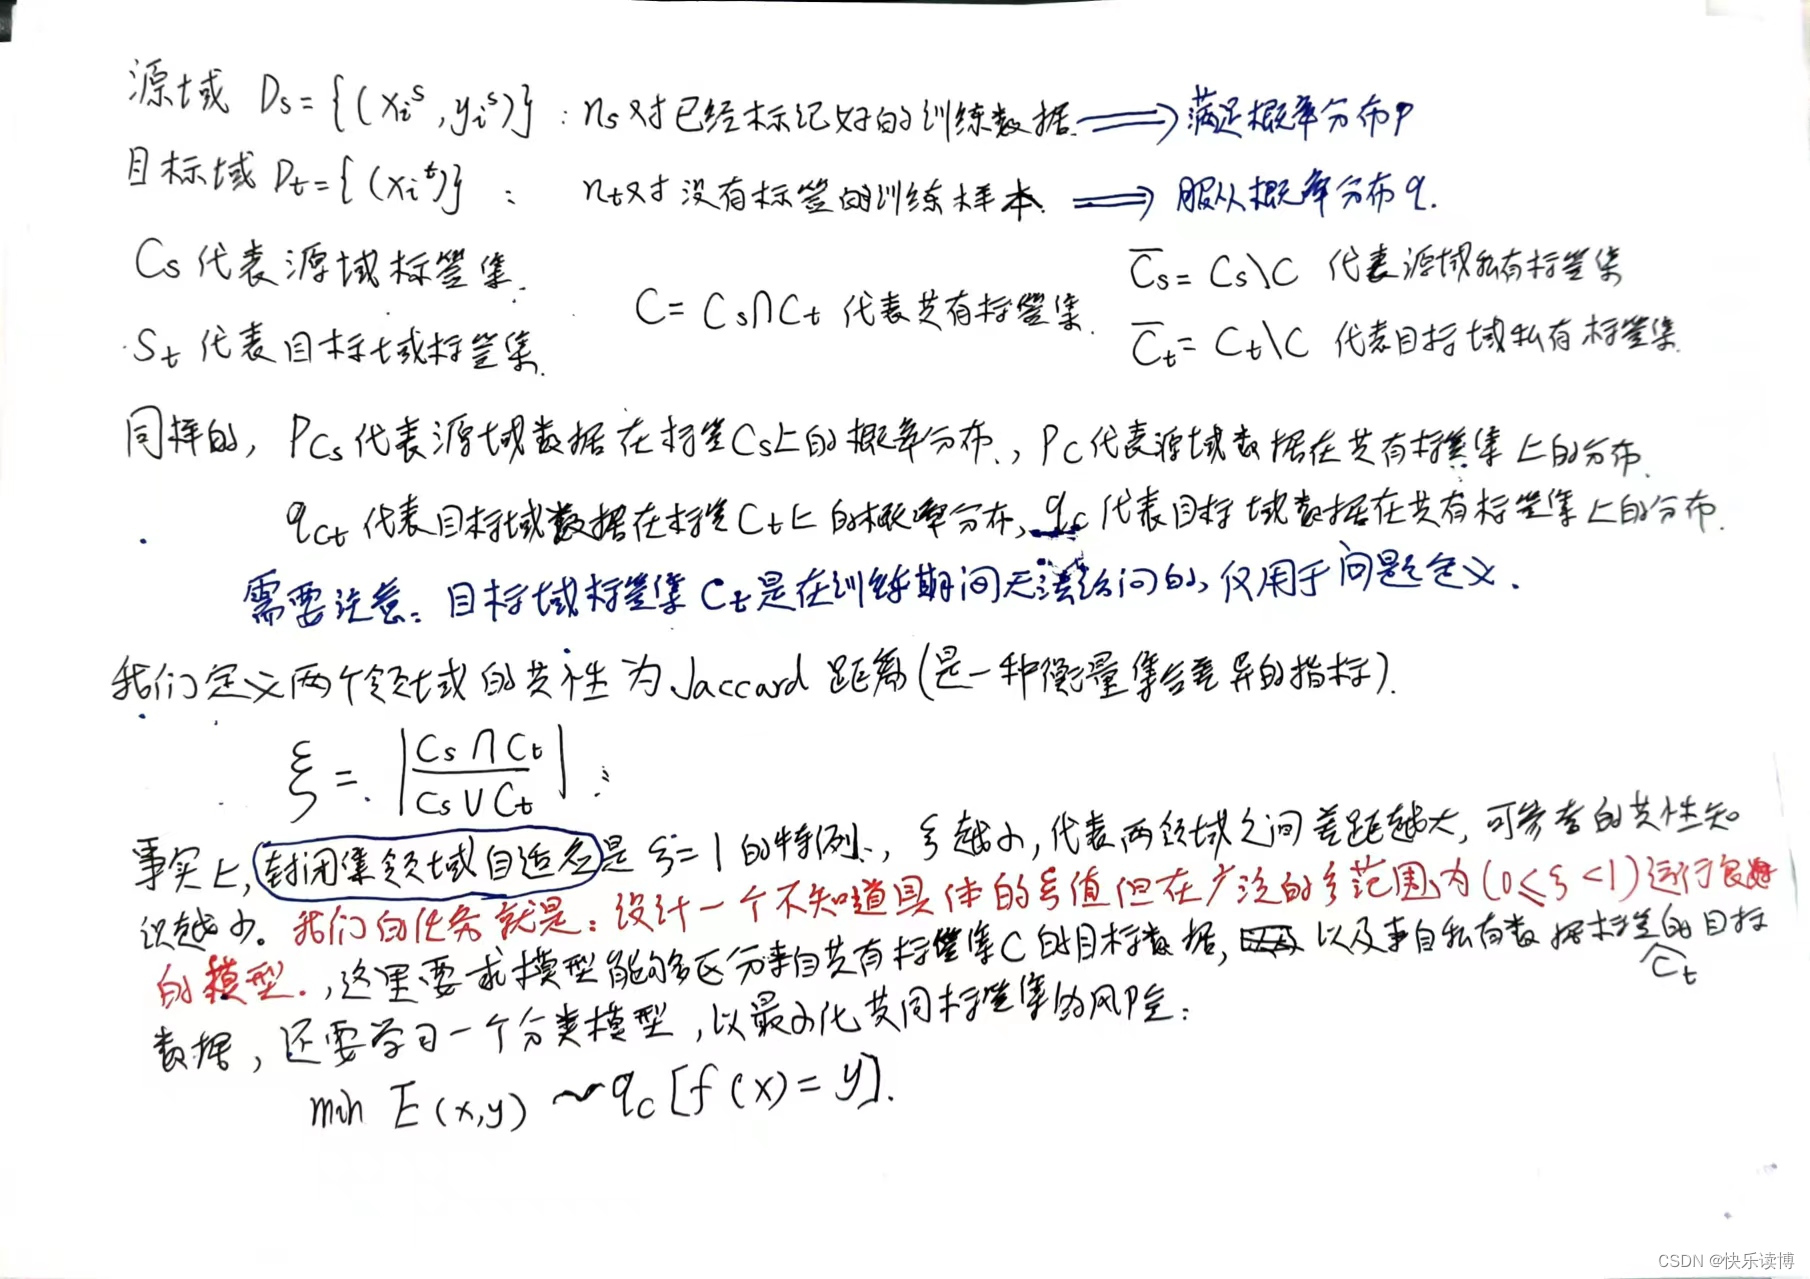 源域 Ds={(xiˢ,yiˢ)} : ns对已经标记好的训练数据. ⟹ 满足概率分布p
目标域 Dt={(xiᵗ)} : nt对没有标签的训练样本. ⟹ 服从概率分布q.
Cs代表源域标签集.
St代表目标域标签集.
C=Cs∩Ct 代表共有标签集.
C̅s=Cs\C 代表源域私有标签集
C̅t=Ct\C 代表目标域私有标签集.
同样的, PCs代表源域数据在标签Cs上的概率分布., PC代表源域数据在共有标签集上的分布.
qCt代表目标域数据在标签Ct上的概率分布, qc代表目标域数据在共有标签集上的分布.
需要注意: 目标域标签集Ct是在训练期间无法访问的, 仅用于问题定义.
我们定义两个领域的共性为Jaccard距离(是一种衡量集合差异的指标).
ξ = |Cs∩Ct / Cs∪Ct| ;
事实上, 封闭集领域自适应是ξ=1的特例, ξ越小, 代表两领域之间差距越大, 可参考的共性知
识越少。我们的任务就是: 设计一个不知道具体的ξ值但在广泛的ξ范围内(0≤ξ<1)运行良好
的模型., 这里要求模型能够区分来自共有标签集C的目标数据, 以及来自私有数据标签的目标
C̅t
数据, 还要学习一个分类模型, 以最小化共同标签集的风险:
min E(x,y)~qc[f(x)=y].
CSDN @快乐读博